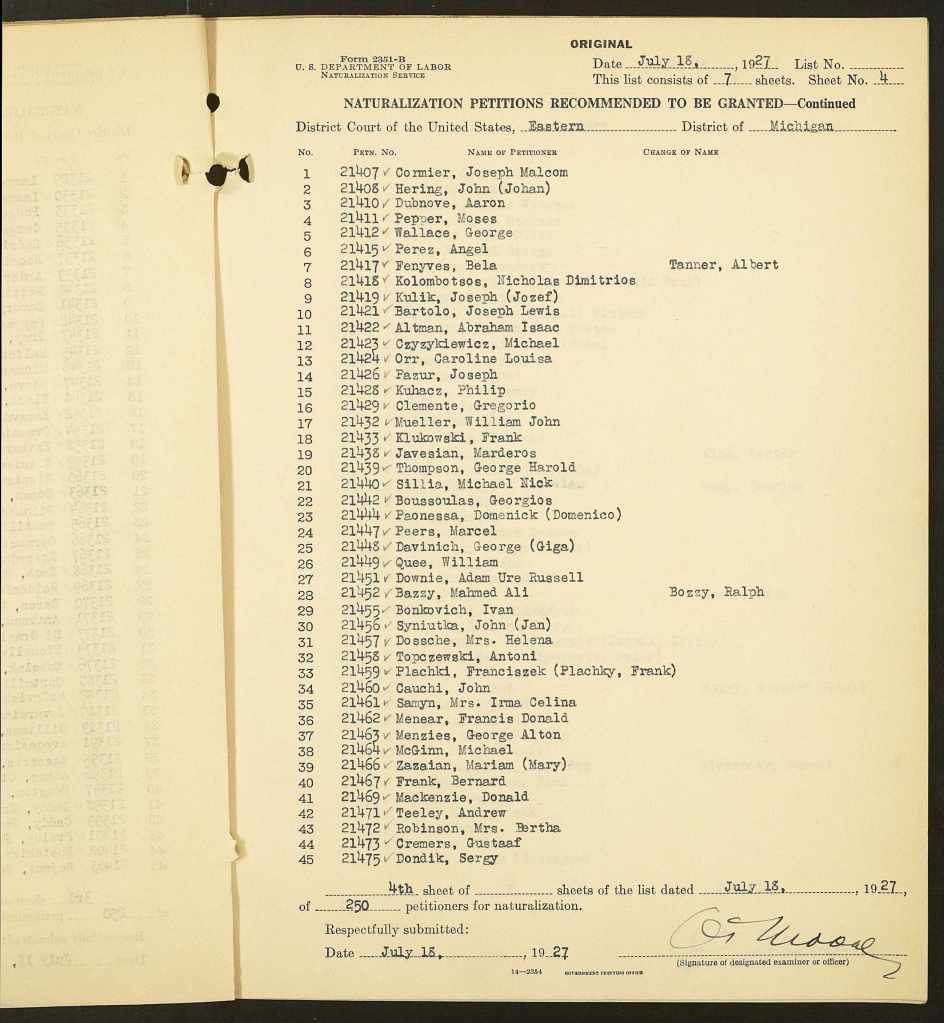 ORIGINAL
Form 2351-B
U. S. DEPARTMENT OF LABOR
NATURALIZATION SERVICE
Date July 18, , 1927 List No.
This list consists of 7 sheets. Sheet No. 4
NATURALIZATION PETITIONS RECOMMENDED TO BE GRANTED—Continued
District Court of the United States, Eastern District of Michigan
No. PETN. No. NAME OF PETITIONER CHANGE OF NAME
1 21407 ✓ Cormier, Joseph Malcom
2 21408 ✓ Hering, John (Johan)
3 21410 ✓ Dubnove, Aaron
4 21411 ✓ Pepper, Moses
5 21412 ✓ Wallace, George
6 21415 ✓ Perez, Angel
7 21417 ✓ Fenyves, Bela Tanner, Albert
8 21418 ✓ Kolombotsos, Nicholas Dimitrios
9 21419 ✓ Kulik, Joseph (Jozef)
10 21421 ✓ Bartolo, Joseph Lewis
11 21422 ✓ Altman, Abraham Isaac
12 21423 ✓ Czyzykiewicz, Michael
13 21424 ✓ Orr, Caroline Louisa
14 21426 ✓ Pazur, Joseph
15 21428 ✓ Kuhacz, Philip
16 21429 ✓ Clemente, Gregorio
17 21432 ✓ Mueller, William John
18 21433 ✓ Klukowski, Frank
19 21438 ✓ Javesian, Marderos
20 21439 ✓ Thompson, George Harold
21 21440 ✓ Sillia, Michael Nick
22 21442 ✓ Boussoulas, Georgios
23 21444 ✓ Paonessa, Domenick (Domenico)
24 21447 ✓ Peers, Marcel
25 21448 ✓ Davinich, George (Giga)
26 21449 ✓ Quee, William
27 21451 ✓ Downie, Adam Ure Russell
28 21452 ✓ Bazzy, Mahmed Ali Bozzy, Ralph
29 21455 ✓ Bonkovich, Ivan
30 21456 ✓ Syniutka, John (Jan)
31 21457 ✓ Dossche, Mrs. Helena
32 21458 ✓ Topczewski, Antoni
33 21459 ✓ Plachki, Franciszek (Plachky, Frank)
34 21460 ✓ Cauchi, John
35 21461 ✓ Samyn, Mrs. Irma Celina
36 21462 ✓ Menear, Francis Donald
37 21463 ✓ Menzies, George Alton
38 21464 ✓ McGinn, Michael
39 21466 ✓ Zazaian, Mariam (Mary)
40 21467 ✓ Frank, Bernard
41 21469 ✓ Mackenzie, Donald
42 21471 ✓ Teeley, Andrew
43 21472 ✓ Robinson, Mrs. Bertha
44 21473 ✓ Cremers, Gustaaf
45 21475 ✓ Dondik, Sergy
4th sheet of sheets of the list dated July 18, , 1927,
of 250 petitioners for naturalization.
Respectfully submitted:
Date July 18, , 1927
(Signature of designated examiner or officer)
14—2354 GOVERNMENT PRINTING OFFICE